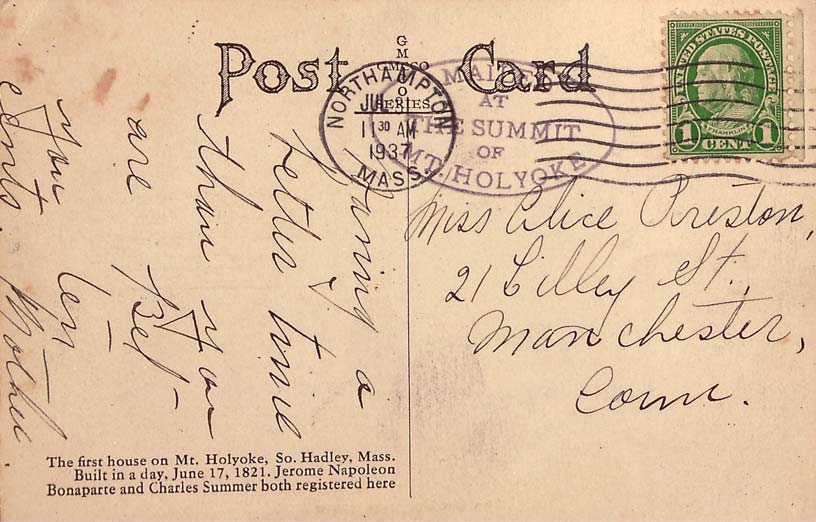 Post Card
G
M
GMCSO
O
SERIES
NORTHAMPTON
JUL
11 30 AM
1937
MASS.
MAILED
AT
THE SUMMIT
OF
MT. HOLYOKE
UNITED STATES POSTAGE
FRANKLIN
1 CENT 1
Having a
better time
than you
are Bet
you ten
cents. Mother
Miss Alice Preston,
21 Lilley St.,
Manchester,
Conn.
The first house on Mt. Holyoke, So. Hadley, Mass.
Built in a day, June 17, 1821. Jerome Napoleon
Bonaparte and Charles Summer both registered here